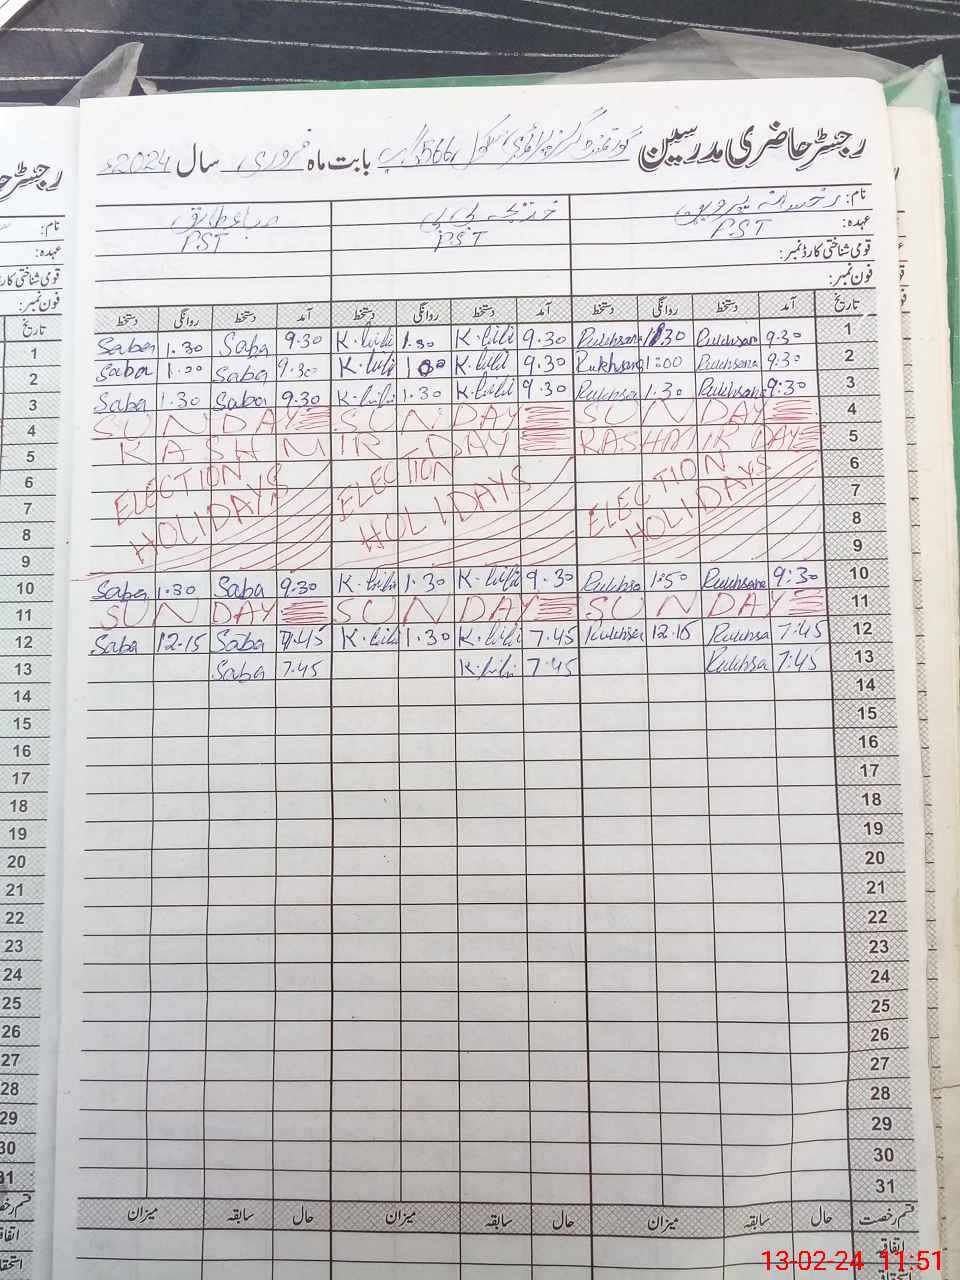 رجسٹر حاضری مدرسین گورنمنٹ گرلز پرائمری سکول 566 گ ب بابت ماہ فروری سال 2024ء
نام: رخسانہ پروین خدیجہ بی بی صباء طارق
عہدہ: PST P.S.T P.ST
قومی شناختی کارڈ نمبر:
فون نمبر:
تاریخ آمد دستخط روانگی دستخط آمد دستخط روانگی دستخط آمد دستخط روانگی دستخط
Saba 1.30 Saba 9.30 K.bibi 1.30 K.bibi 9.30 Rukhsana 1.30 Rukhsana 9.30 1
Saba 1.00 Saba 9.30 K.bibi 1.00 K.bibi 9.30 Rukhsana 1:00 Rukhsana 9.30 2
Saba 1.30 Saba 9.30 K.bibi 1.30 K.bibi 9.30 Rukhsa 1.30 Rukhsana 9:30 3
SUNDAY SUNDAY SUNDAY 4
KASHMIR DAY KASHMIR DAY 5
ELECTION ELECTION ELECTION 6
HOLIDAYS HOLIDAYS HOLIDAYS 7
8
9
Saba 1.30 Saba 9.30 K.bibi 1.30 K.bibi 9.30 Rukhsa Rukhsana 9:30 10
SUNDAY SUNDAY SUNDAY 11
Saba 12.15 Saba 7.45 K.bibi 1.30 K.bibi 7.45 Rukhsa 12.15 Rukhsa 7:45 12
Saba 7.45 K.bibi 7.45 Rukhsa 7:45 13
14
15
16
17
18
19
20
21
22
23
24
25
26
27
28
29
30
31
قسم رخصت حال سابقہ میزان حال سابقہ میزان حال سابقہ میزان
اتفاقیہ
رجسٹر
نام:
عہدہ:
قومی شناختی کارڈ
فون نمبر:
تاریخ
1
2
3
4
5
6
7
8
9
10
11
12
13
14
15
16
17
18
19
20
21
22
23
24
25
26
27
28
29
30
31
13-02-24 11:51